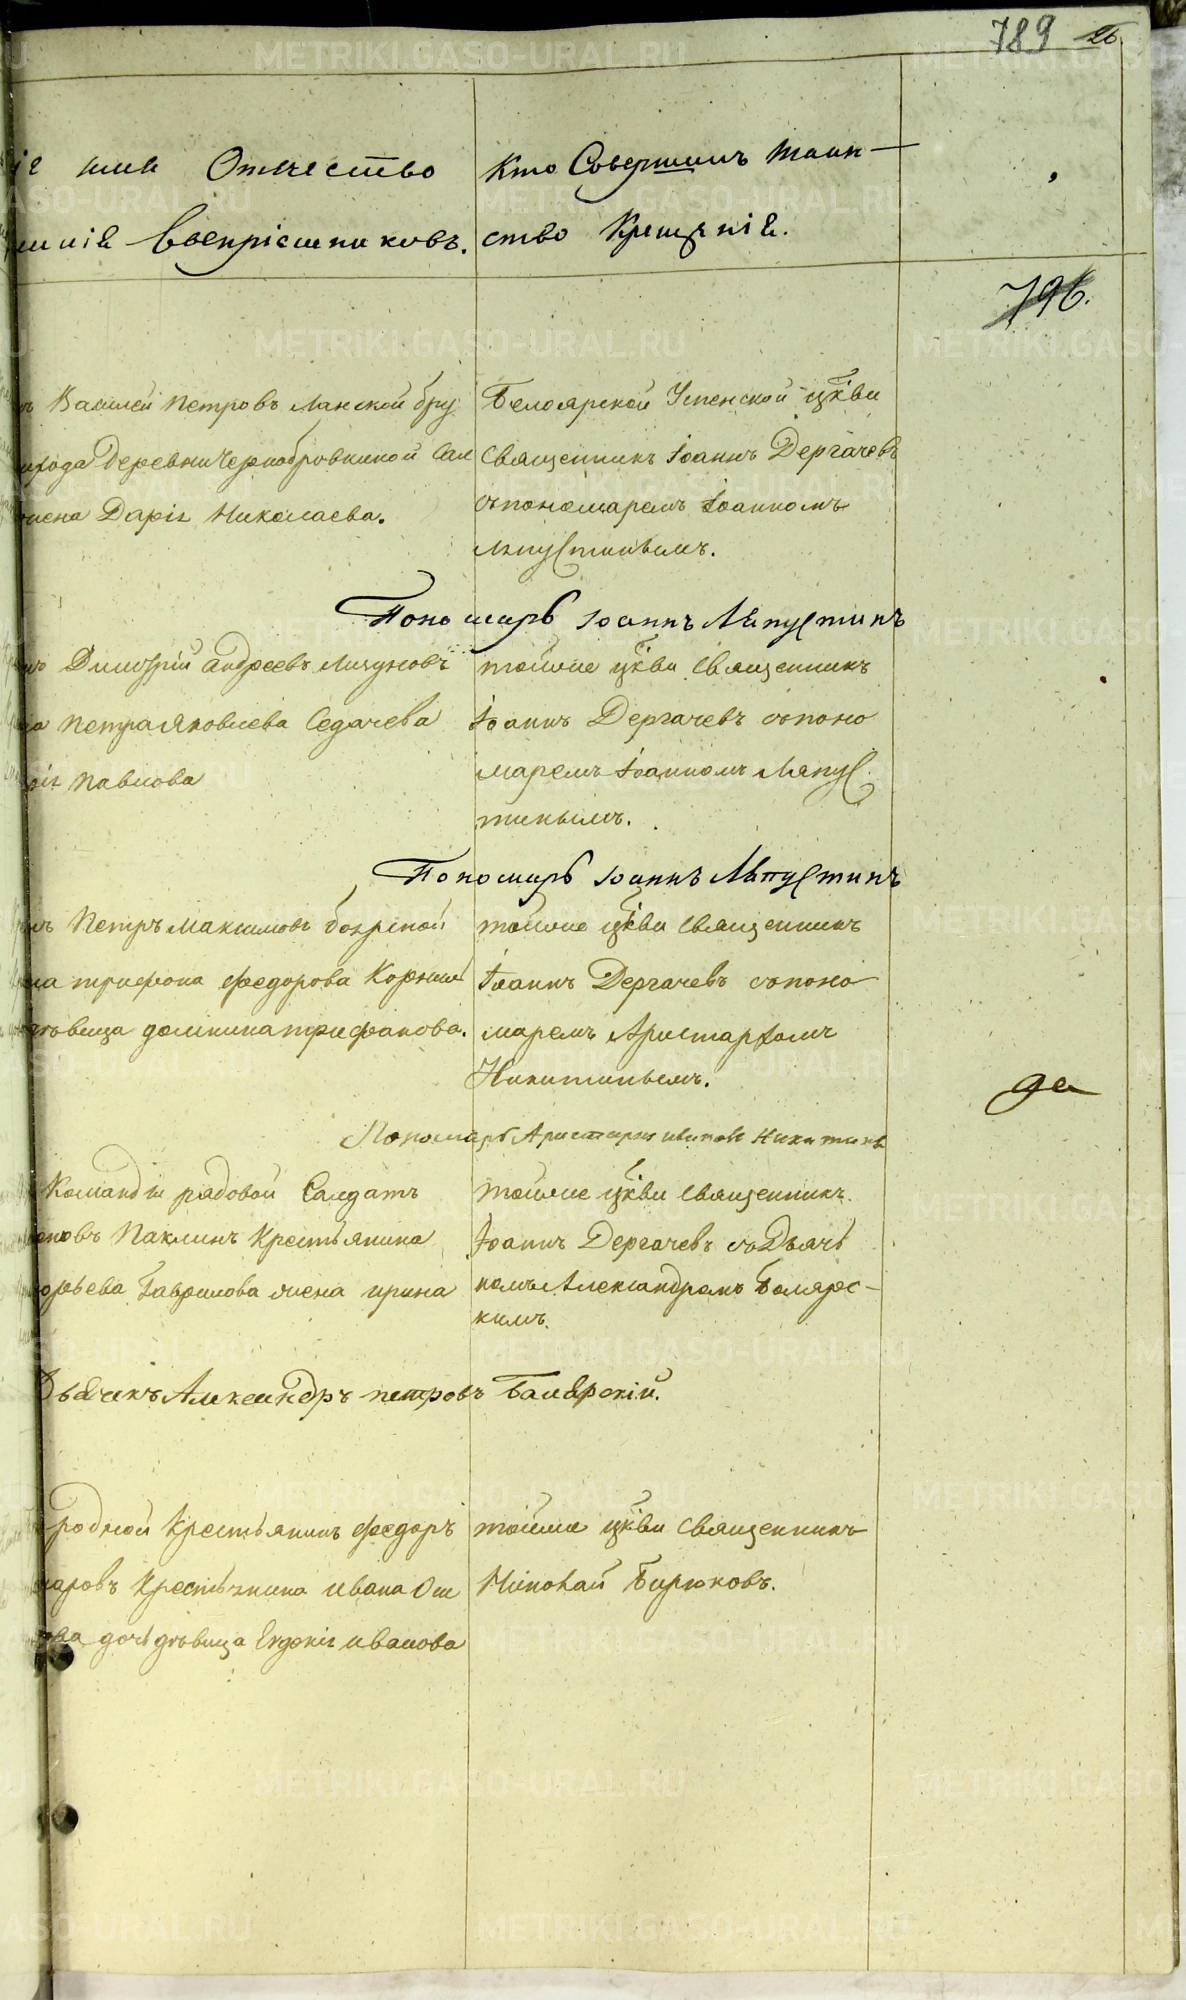 789 26
имя Отчество
Кто Совершилъ таин-
Воспріемниковъ.
ство Крещенія.
796.
Василей Петровъ
деревни Чернобровкиной Сал
Дарія Николаева.
Белоярской Успенской цркви
священникъ Іоаннъ Дергачевъ
съпономаремъ Іоанномъ
Ляпустинымъ.
Пономарь Іоаннъ Ляпустинъ
Димитрій андреевъ
Петра Яковлева Седачева
Павлова
тойже цркви священникъ
Іоаннъ Дергачевъ съпоно
маремъ Іоанномъ Ляпус
тинымъ.
Пономарь Іоаннъ Ляпустинъ
Петръ Максимовъ
трифона федорова
девица домнина трифанова.
тойже цркви священникъ
Іоаннъ Дергачевъ съпоно
маремъ Аристархомъ
Никитинымъ.
да
Пономарь Аристархъ ивановъ Никитинъ
Команды рядовой Салдатъ
Паклинъ Крестьянина
Гаврилова жена ирина
тойже цркви священникъ.
Іоаннъ Дергачевъ съДьячь
комъ Александромъ Боляре-
кимъ.
Дьячекъ Александръ петровъ Балярскій.
родной Крестьянинъ федоръ
Крестьянина ивана Ош
дочь девица Евдокія иванова
тойже цркви священникъ
Николай Бирюковъ.
METRIKI.GASO-URAL.RU